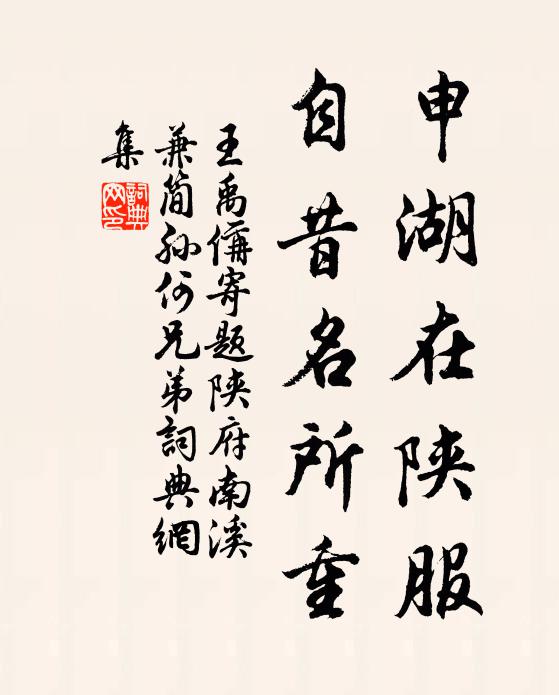 申湖在陕服
自昔名所重
王禹偁寄题陕府南溪
兼简孙何兄弟詞典網
集
詞典網印